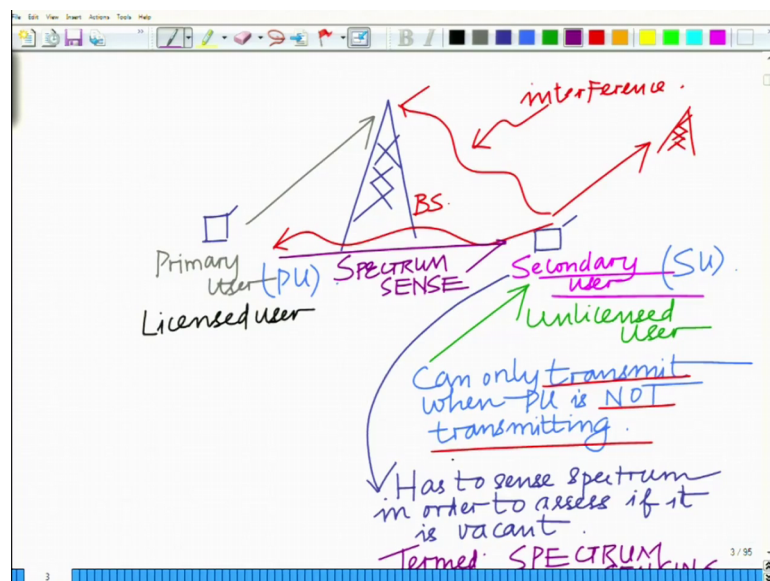 File Edit View Insert Actions Tools Help
B I
interference.
BS.
Primary
user (PU)
Licensed user
SPECTRUM
SENSE
Secondary (SU)
user
Unlicensed
User
Can only transmit
when PU is NOT
transmitting.
Has to sense spectrum
in order to assess if it
is vacant.
Termed SPECTRUM
SENSING
3 / 95
3